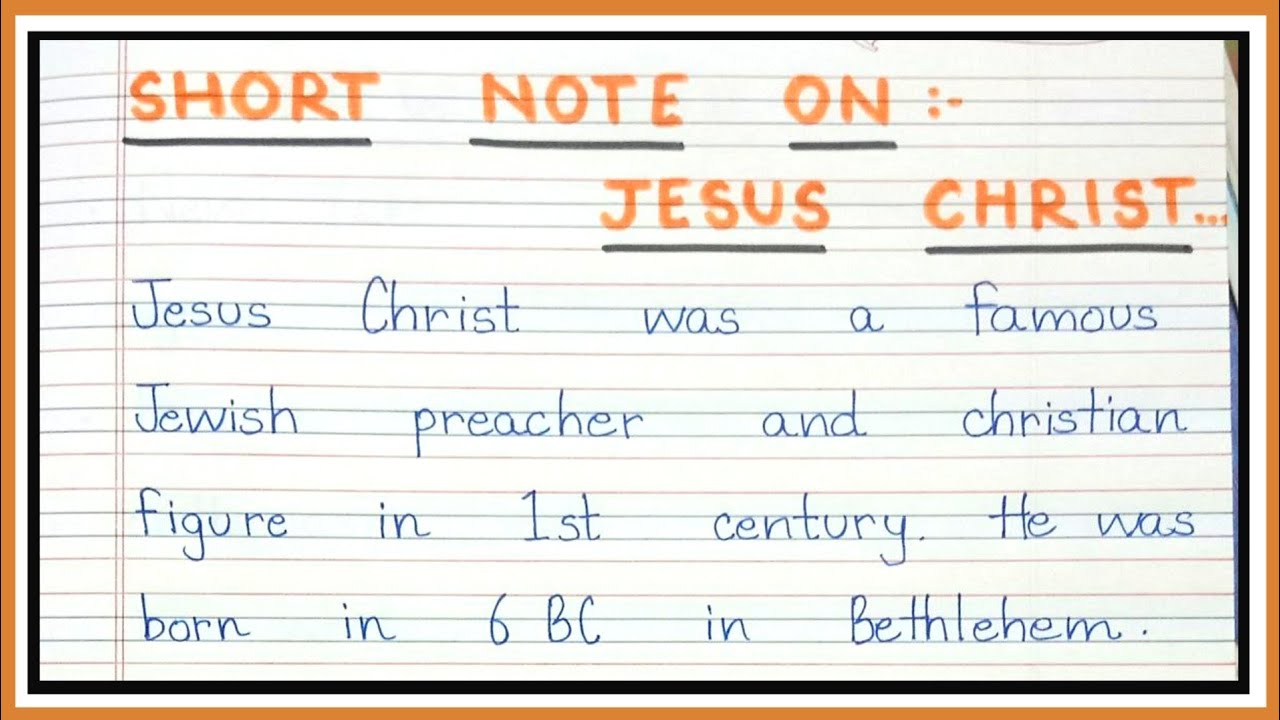 SHORT NOTE ON :-
JESUS CHRIST...
Jesus Christ was a famous
Jewish preacher and christian
figure in 1st century. He was
born in 6 BC in Bethlehem.